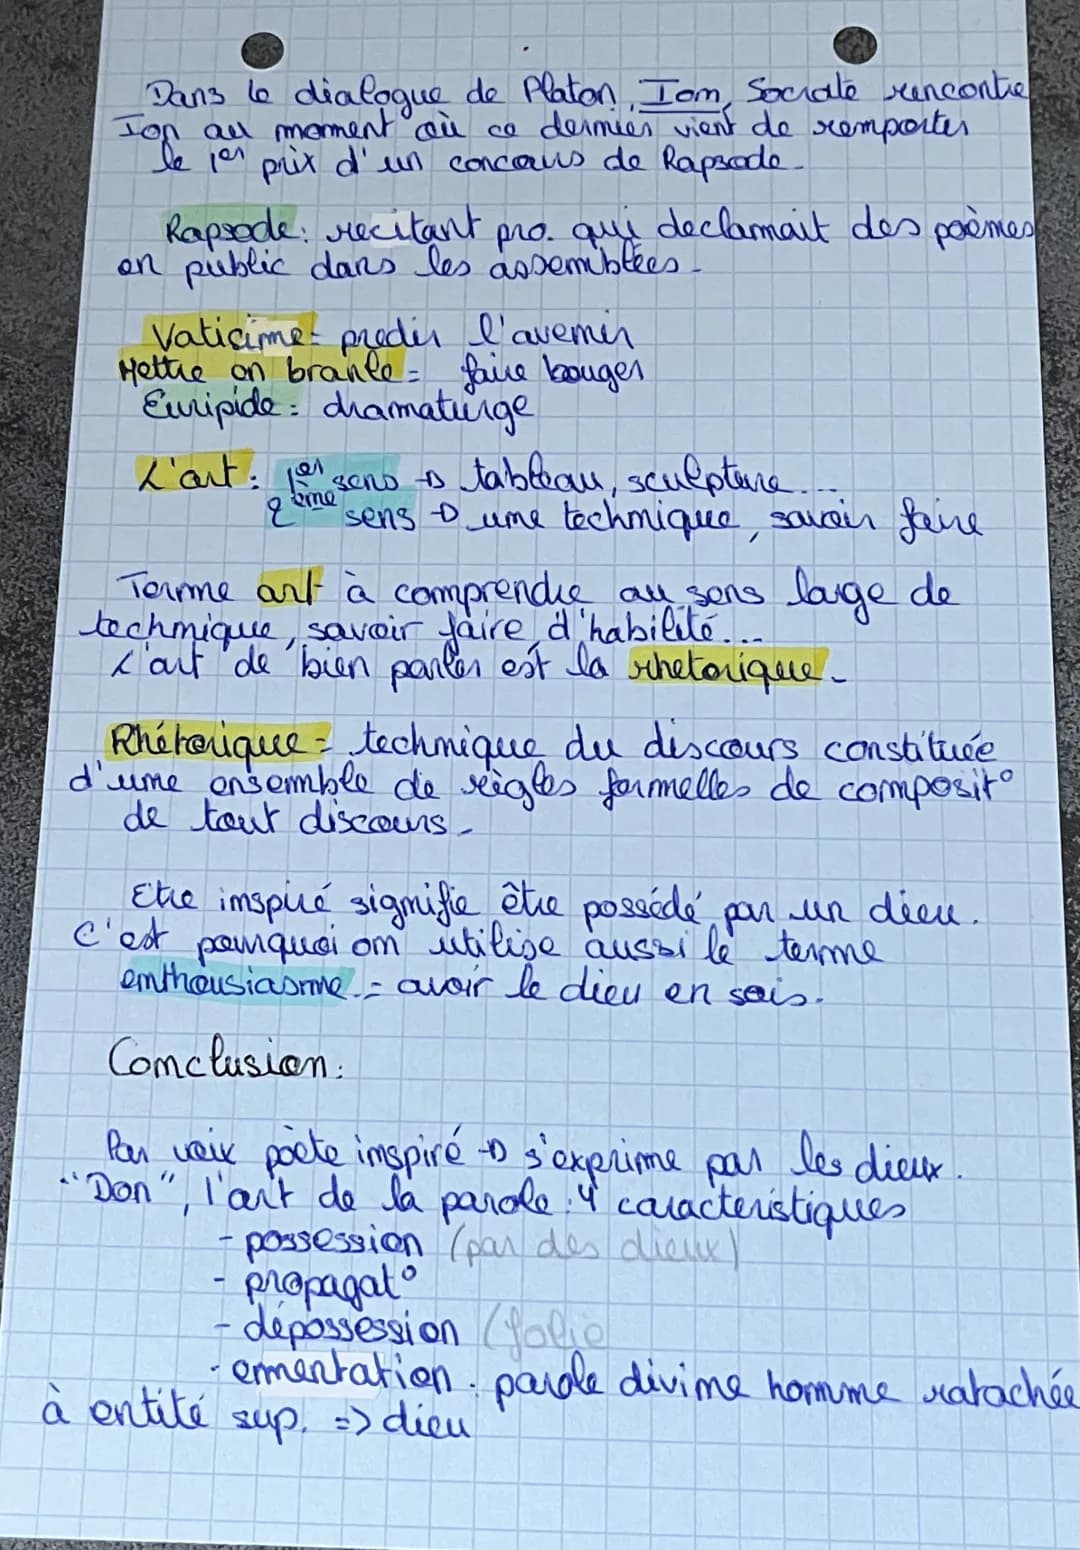 Dans le dialogue de Platon, Ion, Socrate rencontre
Ion au moment où ce dernier vient de remporter
le 1er prix d'un concours de Rapsode.
Rapsode: recitant pro. qui declamait des poèmes
en public dans les assemblées.
Vaticine = predir l'avenir
Mettre en branle = faire bouger
Euripide = dramaturge
L'art : 1er sens → tableau, sculpture...
2ème sens → une technique, savoir faire
Terme art à comprendre au sens large de
technique, savoir faire, d'habilité...
L'art de bien parler est la rhetorique.
Rhétorique = technique du discours constituée
d'une ensemble de règles formelles de composit°
de tout discours.
Etre inspiré signifie être possédé par un dieu.
C'est pourquoi on utilise aussi le terme
enthousiasme = avoir le dieu en sois.
Conclusion:
Par voix poète inspiré → s'exprime par les dieux.
"Don", l'art de la parole : 4 caracteristiques
- possession (par des dieux)
- propagat°
- dépossession (folie
- ermentation : parole divine homme ratachée
à entité sup. => dieu